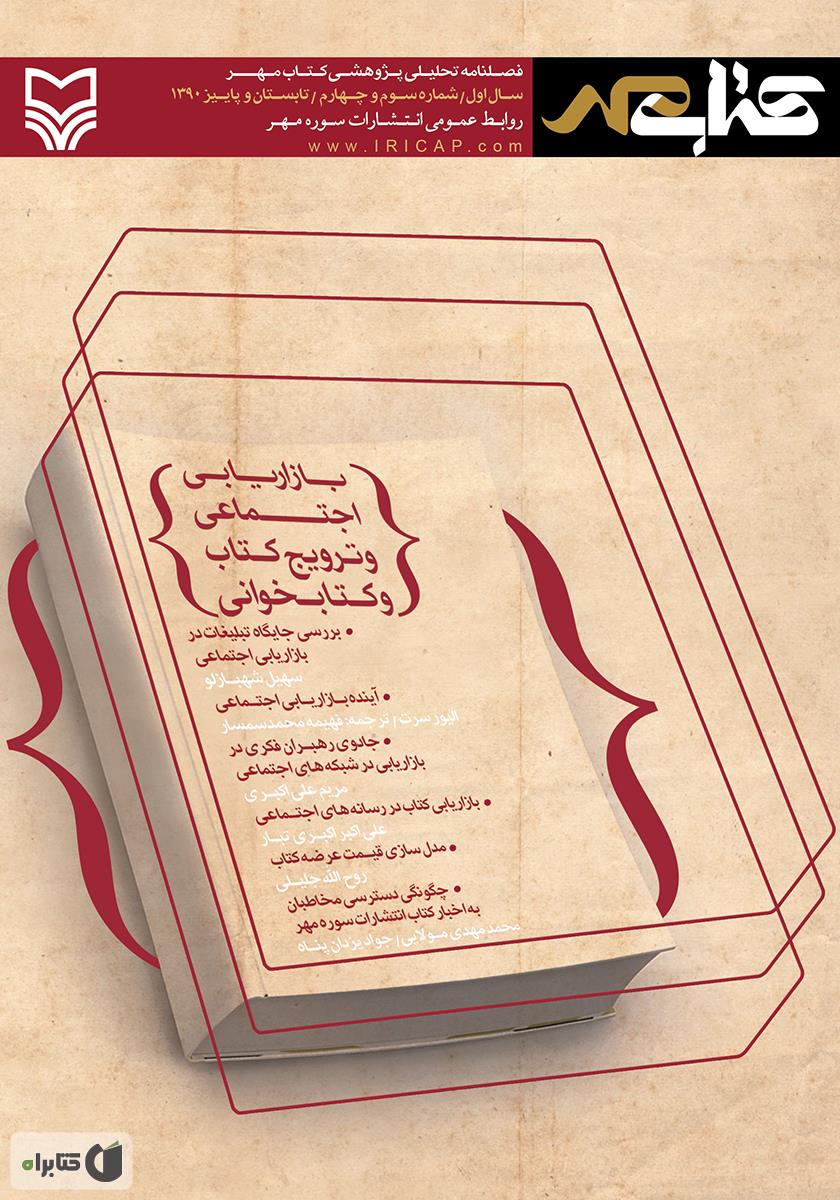 کتاب مهر
فصلنامه تحلیلی پژوهشی کتاب مهر
سال اول / شماره سوم و چهارم / تابستان و پاییز ۱۳۹۰
روابط عمومی انتشارات سوره مهر
www.IRICAP.com
بازاریابی
اجتماعی
و ترویج کتاب
و کتابخوانی
• بررسی جایگاه تبلیغات در
بازاریابی اجتماعی
سهیل شهبازلو
• آینده بازاریابی اجتماعی
الیور سرت / ترجمه: فهیمه محمدسمسار
• جادوی رهبران فکری در
بازاریابی در شبکه‌های اجتماعی
مریم علی اکبری
• بازاریابی کتاب در رسانه‌های اجتماعی
علی اکبر اکبری تبار
• مدل سازی قیمت عرضه کتاب
روح الله جلیلی
• چگونگی دسترسی مخاطبان
به اخبار کتاب انتشارات سوره مهر
محمدمهدی مولایی / جواد یزدان پناه
کتابراه